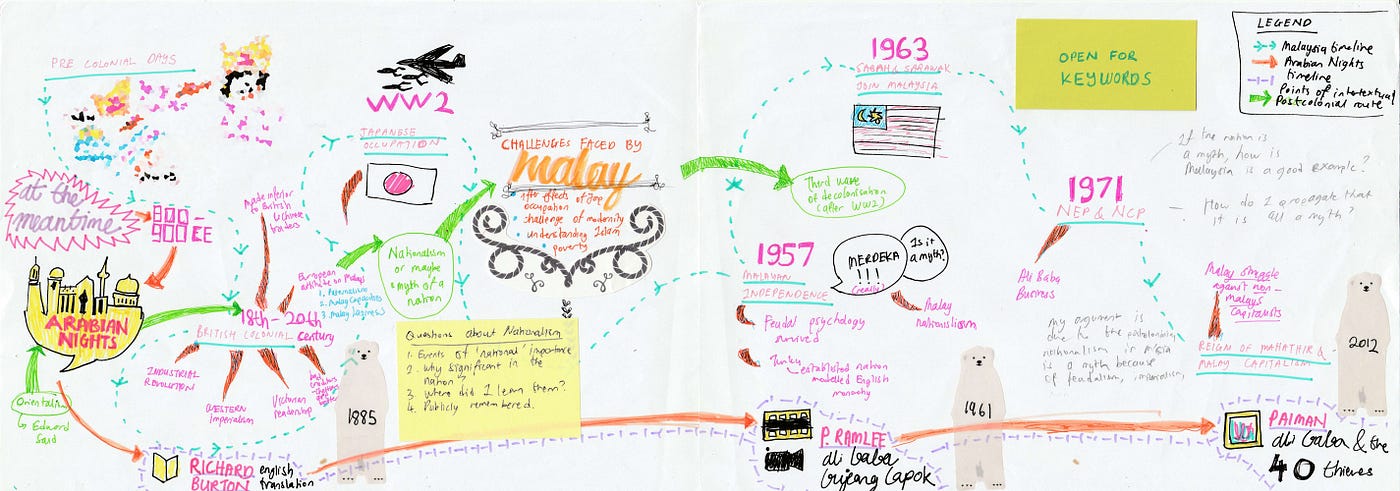 PRE COLONIAL DAYS
at the
meantime
800-
900 CE
ARABIAN
NIGHTS
Orientalism
Edward
Said
Made inferior
to British
& Chinese
traders
European
attitude on Malays
1. Paternalism
2. Malay Capacities
3. Malay laziness
18th-20th
century
BRITISH COLONIAL
INDUSTRIAL
REVOLUTION
WESTERN
Imperialism
Victorian
readership
RICHARD
BURTON
english
translation
1885
WW2
JAPANESE
OCCUPATION
Nationalism
or maybe
myth of a
nation
CHALLENGES FACED BY
malay
after effects of Jap
occupation
challenge of modernity
understanding Islam
poverty
Questions about Nationalism
1. Events of 'national' importance
2. Why significant in the
nation?
3. Where did I learn them?
4. Publicly remembered.
Third wave
of decolonisation
(after WW2)
1963
SABAH & SARAWAK
JOIN MALAYSIA
1957
MALAYAN
INDEPENDENCE
MERDEKA
!!!
(really?)
Is it
a myth?
Malay
nationalism
Feudal psychology
survived
Tunku established nation
modelled English
monarchy
P. RAMLEE
ali baba
bujang lapok
1961
OPEN FOR
KEYWORDS
LEGEND
Malaysia timeline
Arabian Nights
timeline
Points of intertextual
Postcolonial route
If the nation is
a myth, how is
Malaysia is a good example?
How do I propagate that
it is all a myth?
1971
NEP & NCP
Ali Baba
Business
My argument is
due to the postcolonial
nationalism in Asia
is a myth because
of feudalism, imperialism,
Malay struggle
against non-
malays
Capitalists
REIGN OF MAHATHIR &
MALAY CAPITALISM
2012
PAIMAN
ali baba & the
40 thieves